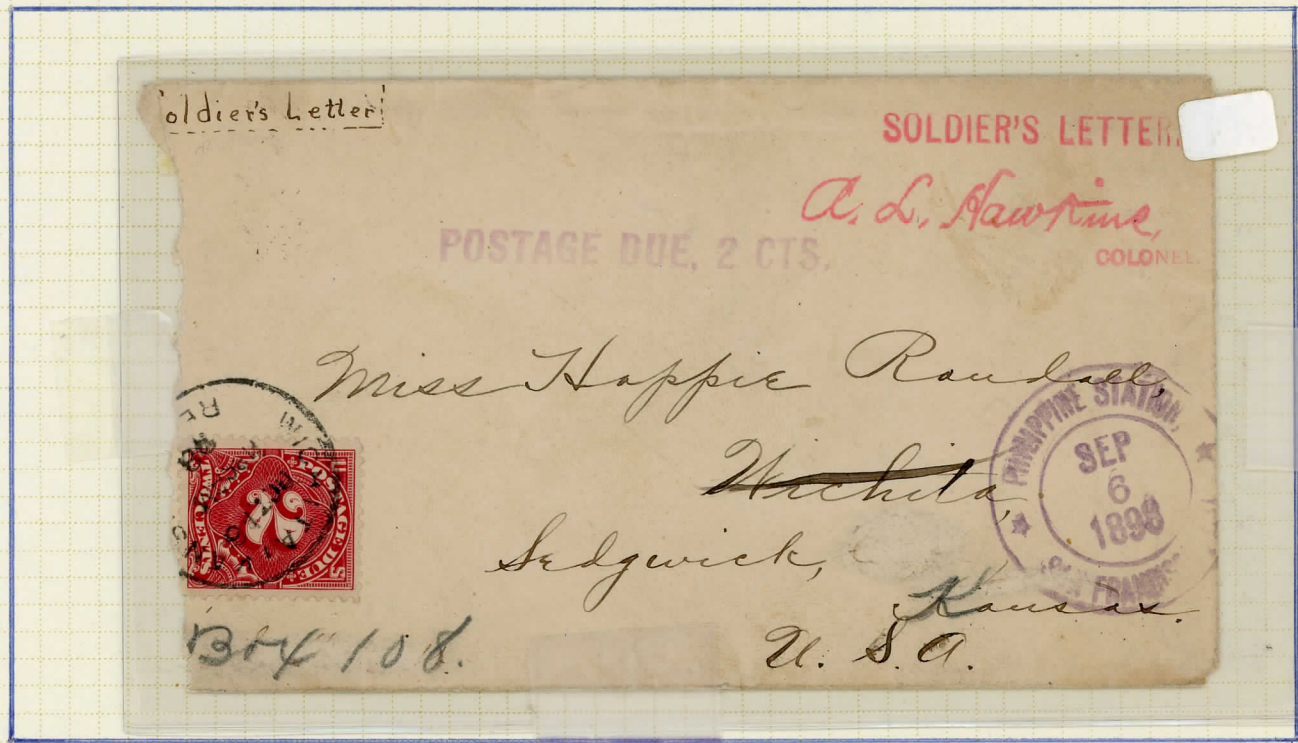 oldier's Letter
SOLDIER'S LETTER
A. L. Hawkins,
COLONEL.
POSTAGE DUE, 2 CTS.
Miss Hoppie Randall,
Wichita,
Sedgwick,
Kansas.
U. S. A.
Box 108.
PHILIPPINE STATION,
SEP
6
1898
SAN FRANCIS
POSTAGE DUE
2
TWO CENTS